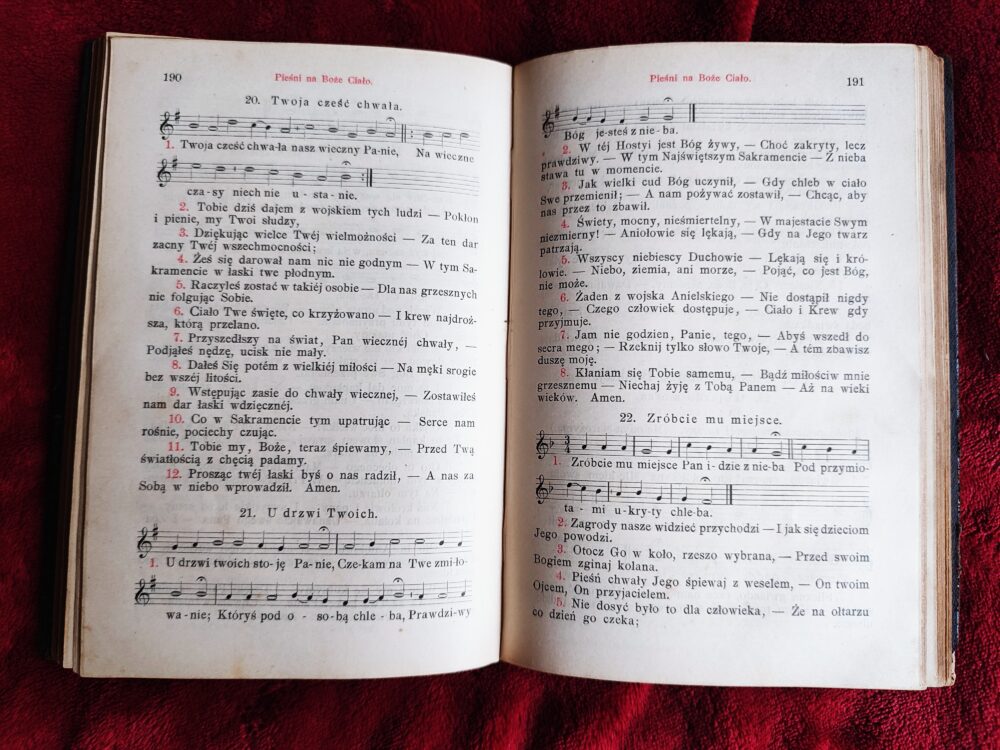 190
Pieśni na Boże Ciało.
20. Twoja cześć chwała.
1. Twoja cześć chwa-ła nasz wieczny Pa-nie, Na wieczne
cza-sy niech nie u-sta-nie.
2. Tobie dziś dajem z wojskiem tych ludzi — Pokłon
i pienie, my Twoi słudzy,
3. Dziękując wielce Twéj wielmożności — Za ten dar
zacny Twéj wszechmocności;
4. Żeś się darował nam nic nie godnym — W tym Sa-
kramencie w łaski twe płodnym.
5. Raczyłeś zostać w takiéj osobie — Dla nas grzesznych
nie folgując Sobie.
6. Ciało Twe święte, co krzyżowano — I krew najdroż-
sza, którą przelano.
7. Przyszedłszy na świat, Pan wiecznéj chwały, —
Podjąłeś nędzę, ucisk nie mały.
8. Dałeś Się potém z wielkiéj miłości — Na męki srogie
bez wszéj litości.
9. Wstępując zasie do chwały wiecznej, — Zostawiłeś
nam dar łaski wdzięcznéj.
10. Co w Sakramencie tym upatrując — Serce nam
rośnie, pociechy czując.
11. Tobie my, Boże, teraz śpiewamy, — Przed Twą
światłością z chęcią padamy.
12. Prosząc twéj łaski byś o nas radził, — A nas za
Sobą w niebo wprowadził. Amen.
21. U drzwi Twoich.
1. U drzwi twoich sto-ję Pa-nie, Cze-kam na Twe zmi-ło-
wa-nie; Któryś pod o-so-bą chle-ba, Prawdzi-wy
Pieśni na Boże Ciało.
191
Bóg je-steś z nie-ba.
2. W téj Hostyi jest Bóg żywy, — Choć zakryty, lecz
prawdziwy. — W tym Najświętszym Sakramencie — Z nieba
stawa tu w momencie.
3. Jak wielki cud Bóg uczynił, — Gdy chleb w ciało
Swe przemienił; — A nam pożywać zostawił, — Chcąc, aby
nas przez to zbawił.
4. Święty, mocny, nieśmiertelny, — W majestacie Swym
niezmierny! — Aniołowie się lękają, — Gdy na Jego twarz
patrzają.
5. Wszyscy niebiescy Duchowie — Lękają się i kró-
lowie. — Niebo, ziemia, ani morze, — Pojąć, co jest Bóg,
nie może.
6. Żaden z wojska Anielskiego — Nie dostąpił nigdy
tego, — Czego człowiek dostępuje, — Ciało i Krew gdy
przyjmuje.
7. Jam nie godzien, Panie, tego, — Abyś wszedł do
secra mego; — Rzeknij tylko słowo Twoje, — A tém zbawisz
duszę moję.
8. Kłaniam się Tobie samemu, — Bądź miłościw mnie
grzesznemu — Niechaj żyję z Tobą Panem — Aż na wieki
wieków. Amen.
22. Zróbcie mu miejsce.
1. Zróbcie mu miejsce Pan i-dzie z nie-ba Pod przymio-
ta-mi u-kry-ty chle-ba.
2. Zagrody nasze widzieć przychodzi — I jak się dzieciom
Jego powodzi.
3. Otocz Go w koło, rzeszo wybrana, — Przed swoim
Bogiem zginaj kolana.
4. Pieśń chwały Jego śpiewaj z weselem, — On twoim
Ojcem, On przyjacielem.
5. Nie dosyć było to dla człowieka, — Że na ołtarzu
co dzień go czeka;